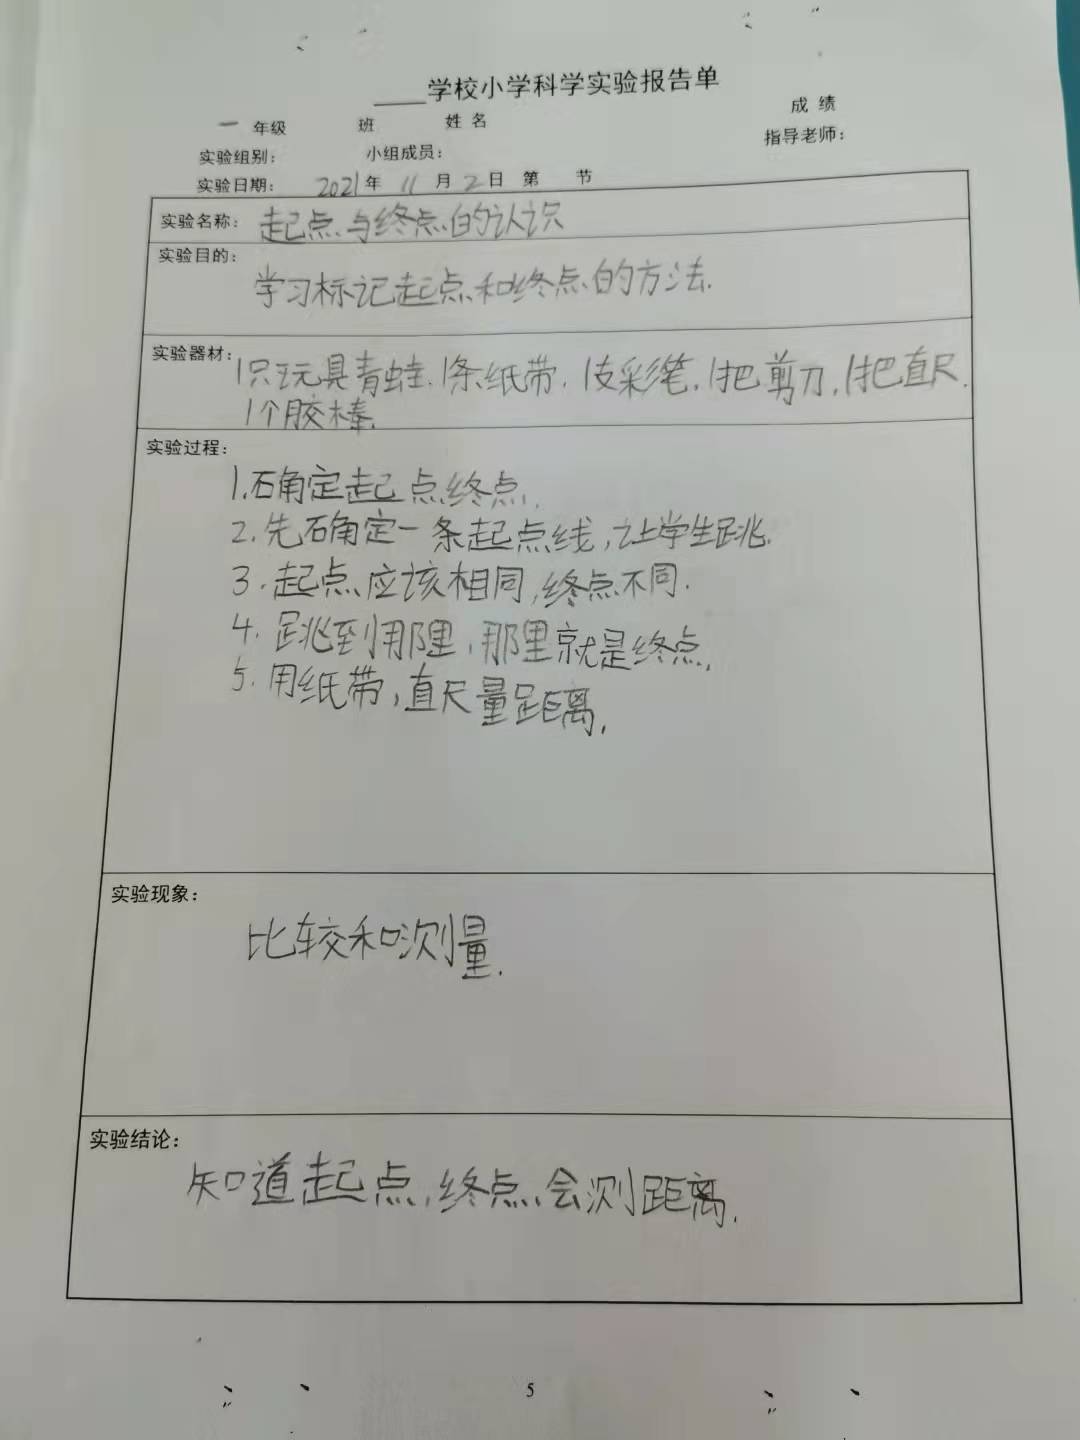 ____学校小学科学实验报告单
一 年级 班 姓名 成绩
实验组别： 小组成员： 指导老师：
实验日期： 2021年 11月 2日 第 节
实验名称： 起点与终点的认识
实验目的：
学习标记起点和终点的方法.
实验器材： 1只玩具青蛙.1条纸带.1支彩笔.1把剪刀.1把直尺.
1个胶棒.
实验过程：
1.确定起点终点.
2.先确定一条起点线,让学生跳.
3.起点应该相同,终点不同.
4.跳到哪里,那里就是终点.
5.用纸带,直尺量距离.
实验现象：
比较和测量.
实验结论：
知道起点,终点会测距离.
5